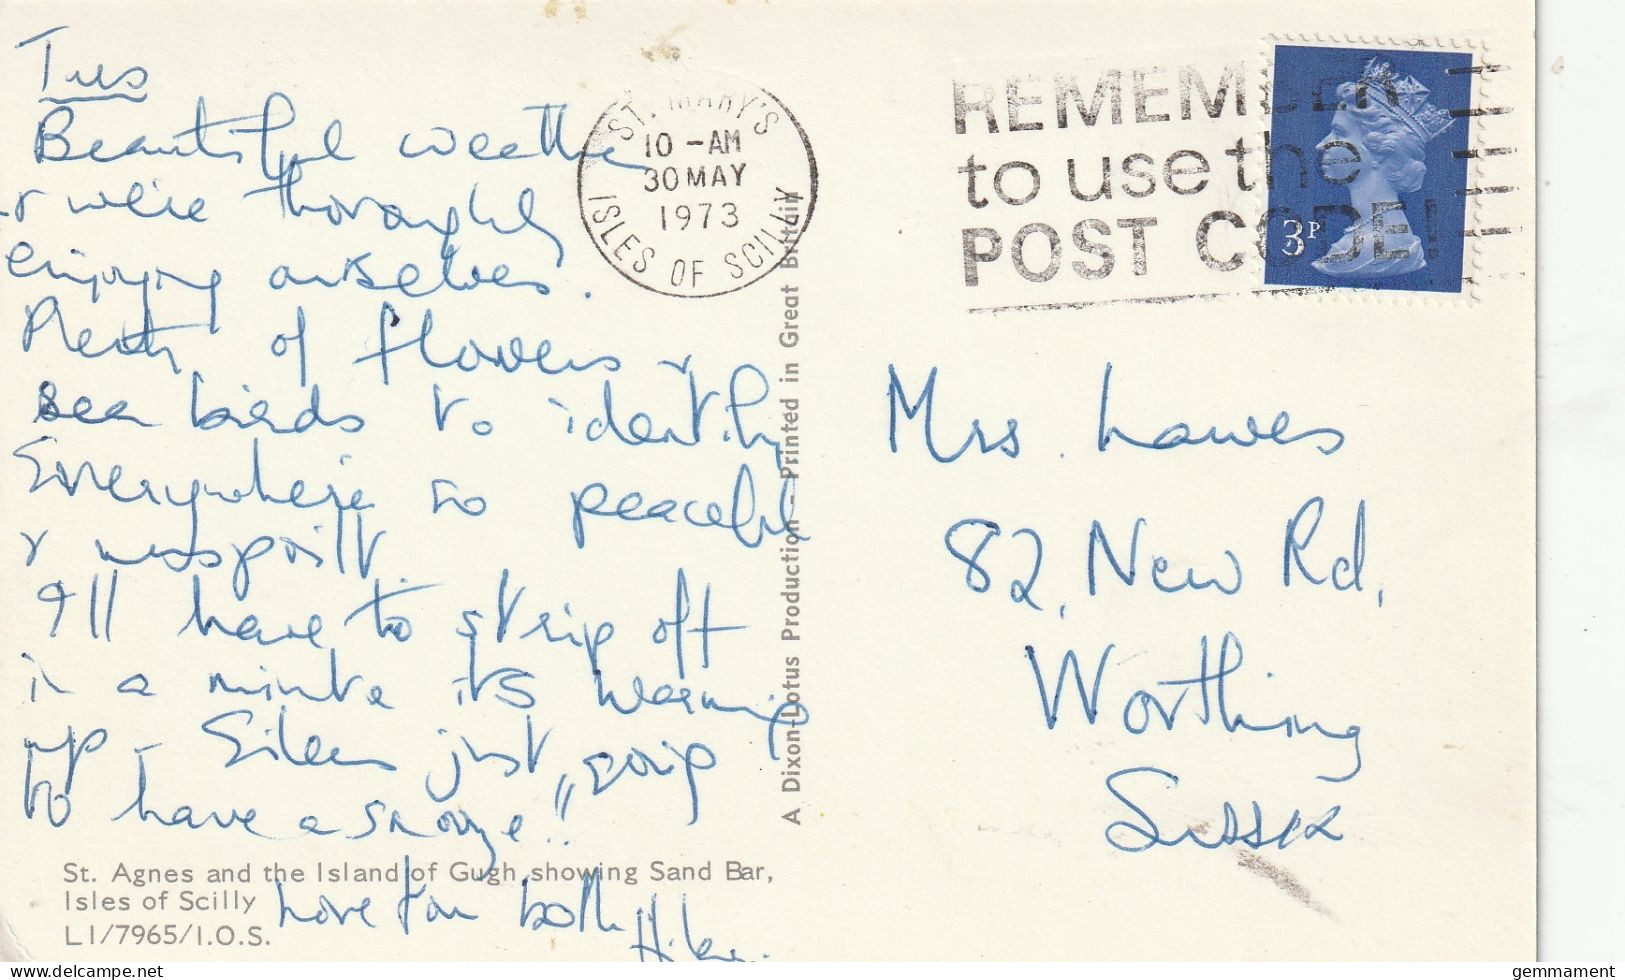 Tues
Beautiful weather
& we're thoroughly
enjoying ourselves.
Plenty of flowers &
sea birds to identify
Everywhere so peaceful
& unspoilt.
I'll have to strip off
in a minute its warming
up – Eileen just "going
to have a snooze"!
Love from both
ST. MARY'S
10 -AM
30 MAY
1973
ISLES OF SCILLY
REMEMBER
to use the
POST CODE!
3P
Mrs. Lawes
82, New Rd,
Worthing
Sussex
A Dixon-Lotus Production – Printed in Great Britain
St. Agnes and the Island of Gugh showing Sand Bar,
Isles of Scilly
L1/7965/I.O.S.
gemmament